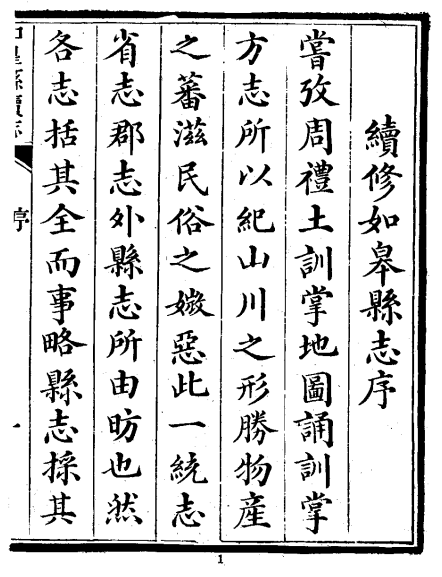 續修如皋縣志序
嘗攷周禮土訓掌地圖誦訓掌
方志所以紀山川之形勝物產
之蕃滋民俗之媺惡此一統志
省志郡志外縣志所由昉也然
各志括其全而事略縣志採其
如皋縣續志
序
一
1